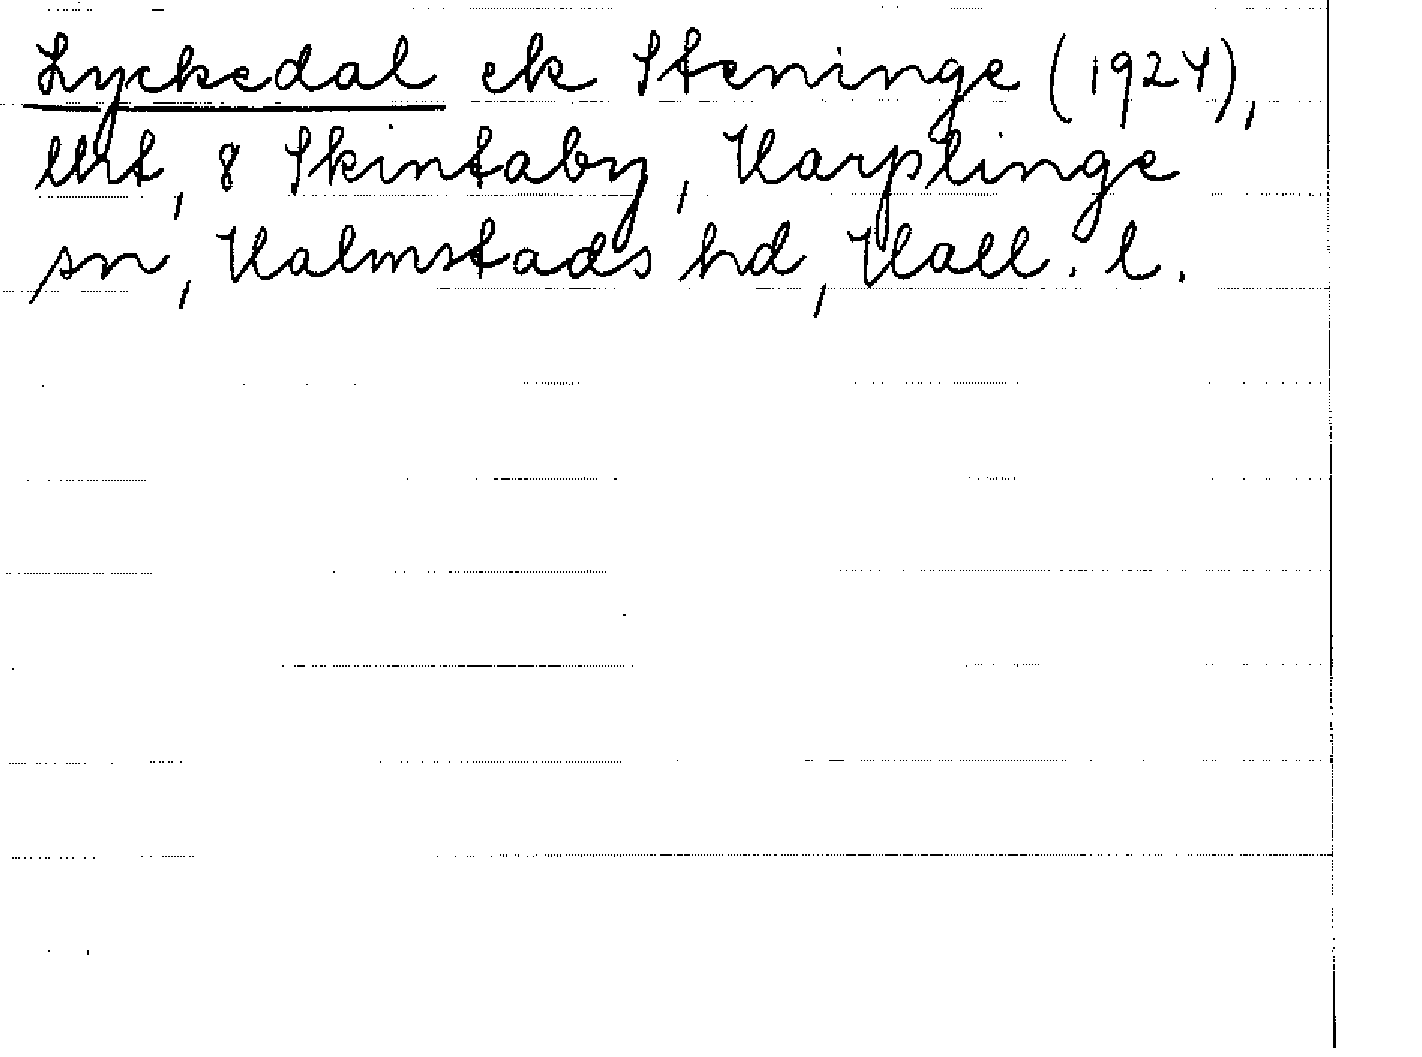 Lyckedal ek Steninge (1924),
lht, 8 Skintaby, Harplinge
sn, Halmstads hd, Hall. l.